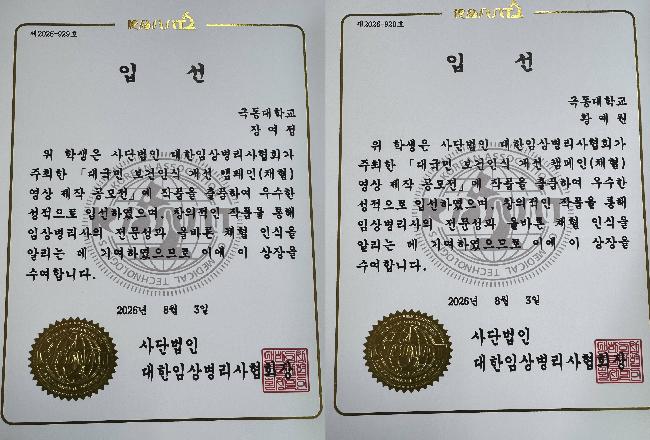 제2026-929호
입 선
극동대학교
장여점
위 학생은 사단법인 대한임상병리사협회가
주최한 「대국민 보건인식 개선 캠페인(채혈)
영상 제작 공모전」에 작품을 출품하여 우수한
성적으로 입선하였으며, 창의적인 작품을 통해
임상병리사의 전문성과 올바른 채혈 인식을
알리는 데 기여하였으므로 이에 이 상장을
수여합니다.
2026년 8월 3일
사단법인
대한임상병리사협회장
제2026-920호
입 선
극동대학교
황예원
위 학생은 사단법인 대한임상병리사협회가
주최한 「대국민 보건인식 개선 캠페인(채혈)
영상 제작 공모전」에 작품을 출품하여 우수한
성적으로 입선하였으며, 창의적인 작품을 통해
임상병리사의 전문성과 올바른 채혈 인식을
알리는 데 기여하였으므로 이에 이 상장을
수여합니다.
2026년 8월 3일
사단법인
대한임상병리사협회장